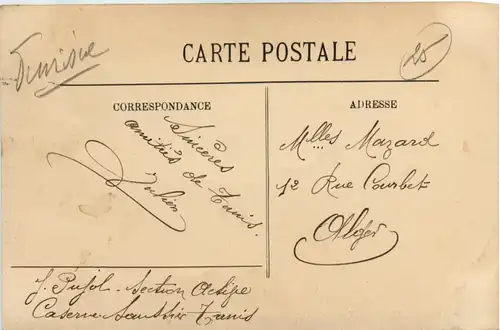 Tunisie
25
CARTE POSTALE
CORRESPONDANCE
Sincères
amitiés de Tunis.
Julien
ADRESSE
Mlles Mazard
12 Rue Courbet
Alger
J. Pujol. Section Active
Caserne Saussier Tunis